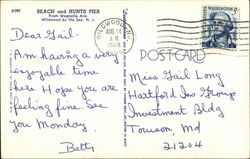 BEACH and HUNTS PIER
From Magnolia Ave.
Wildwood by the Sea, N. J.
WILDWOOD, N.J.
AUG 14
WASHINGTON
POSTCARD
Dear Gail.
Am having a very
enjoyable time
here Hope you are
feeling fine. See
you Monday.
Betty
Miss Gail Long
Hartford Ins Group
Investment Bldg
Towson, Md
21204